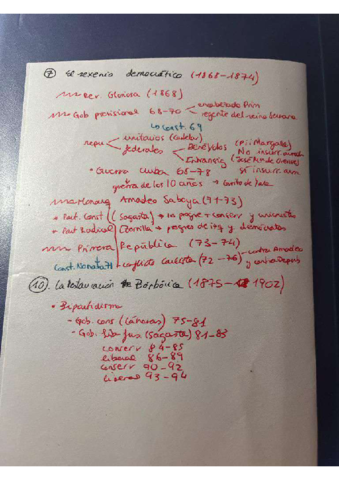 ⑦ El sexenio democrático (1868-1874)
Rev. Gloriosa (1868)
Gob provisional 68-70 encabezado Prim
regente del reino Serrano
Const. 69
repu unitarios (Castelar)
federales Benévolos (Pi i Margall)
No insurreccional
Si insurr
Guerra Cuba 68-78
guerra de los 10 años →
Monarq Amadeo Saboya (71-73)
Part. Const (Sagasta) → progre conserv y unionista
Part Radical Zorrilla → progres de izq y demócratas
Primera República (73-74)
Const. Nonata 73 conflicto carlista (72-76) contra Amadeo
y
⑩. La Restauración Borbónica (1875-1902)
• Bipartidismo
- Gob. cons (Cánovas) 75-81
- Gob. (Sagasta) 81-83
conserv 84-85
liberal 86-89
conserv 90-92
liberal 93-94